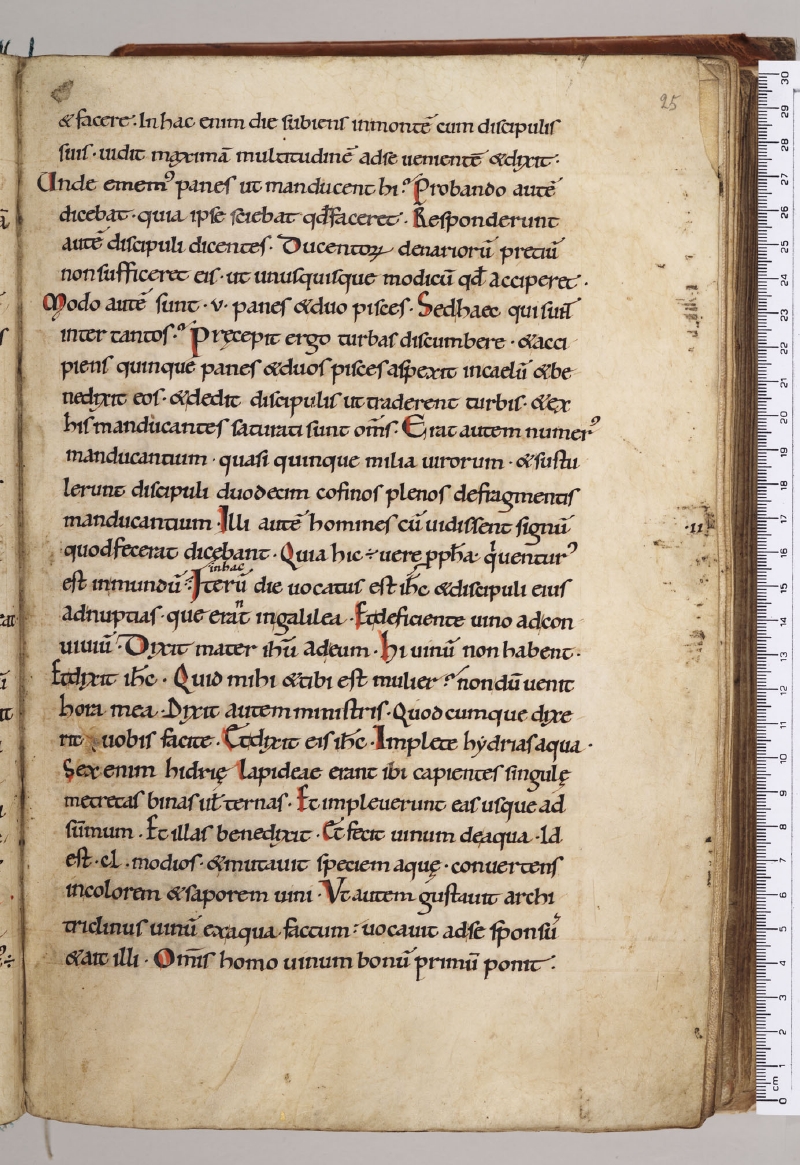 25
& facere. In hac enim die subiens inmontē cum discipulis
suis. uidit maximā multitudinē adse uenientē &dixit.
Unde ememꝰ panes ut manducent hi? Probando autē
dicebat. quia ipse sciebat qđfaceret. Responderunt
autē discipuli dicentes. Ducentoꝝ denariorū preciū
nonsufficeret eis. ut unusquisque modicū qđ acciperet.
Modo autē sunt. v. panes &duo pisces. Sedhaec qui sun̄
inter tantos? Pręcepit ergo turbas discumbere. &acci
piens quinque panes &duos pisces aspexit incaelū &be
nedixit eos. &dedit discipulis uttraderent turbis. &ex
his manducantes saturati sunt om̄s. Erat autem numerꝰ
manducantium. quasi quinque milia uirorum. &sustu
lerunt discipuli duodecim cofinos plenos defragmentis
manducantium. Illi autē homines cū uidissent signū
.ii
quodfecerat dicebant. Quia hic ÷ uere ꝓpħa. q̇uenturꝰ
inhac
est inmundū. Iterū die uocatus est ih̄c &discipuli eius
n
adnuptias. que erat ingalilea. Et deficiente uino adcon
uiuiū. Dixit mater ih̄u adeum. Hi uinū non habent.
Etdixit ih̄c. Quid mihi &tibi est mulier? nondū uenit
hora mea. Dixit autem ministris. Quodcumque dixe
rit uobis facite. Etdixit eis ih̄c. Implete hydrias aqua.
Sex enim hidrię lapideae erant ibi capientes singulę
metretas binas uł ternas. Et impleuerunt eas usque ad
sūmum. Et illas benedixit. Et fecit uinum deaqua. Id
est. cl. modios. &mutauit speciem aquę. conuertens
incolorem &saporem uini. Vt autem gustauit archi
triclinus uinū exaqua factum. uocauit adse sponsū
&ait illi. Om̄is homo uinum bonū primū ponit.